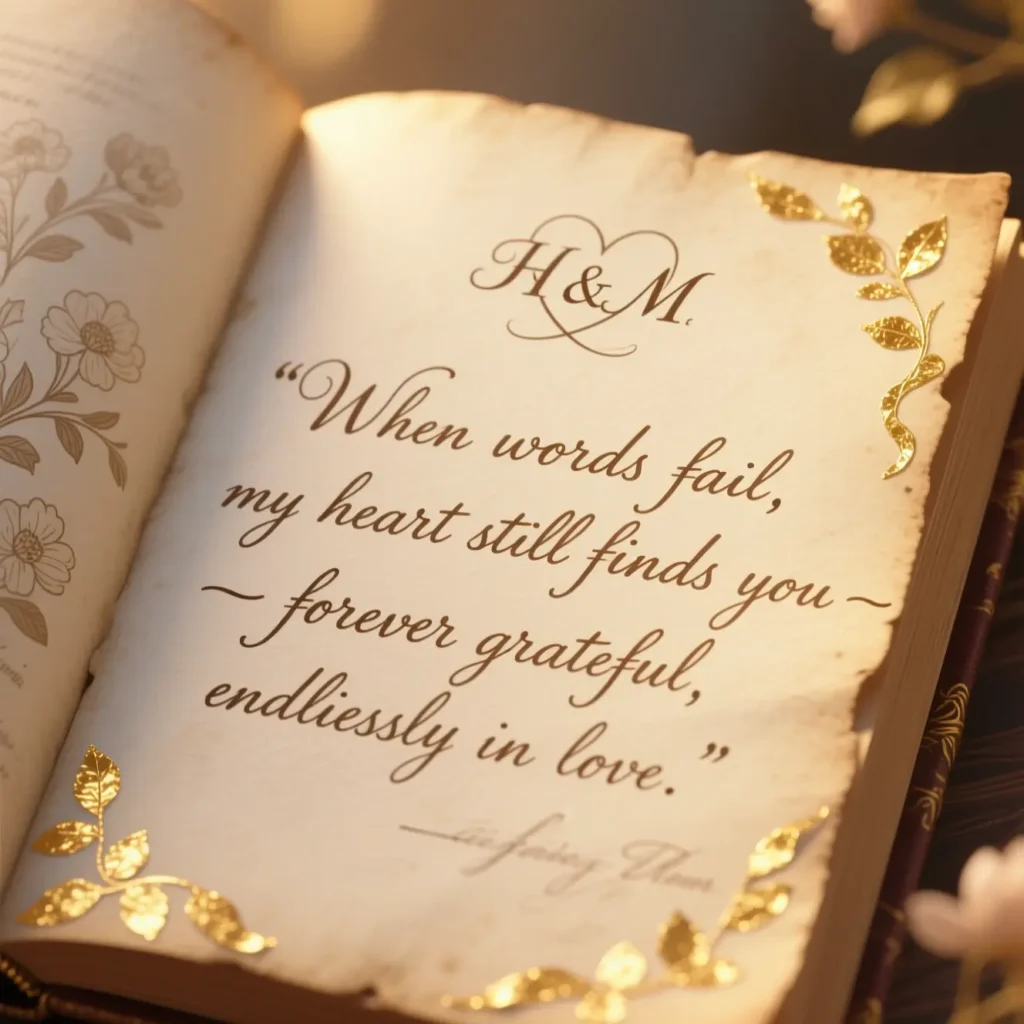 H & M.
“When words fail,
my heart still finds you ~
~ forever grateful,
endliessly in love.”